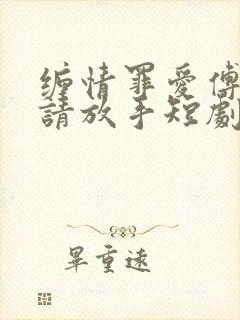 缠情罪愛傅
請放手短劇
畢重遠